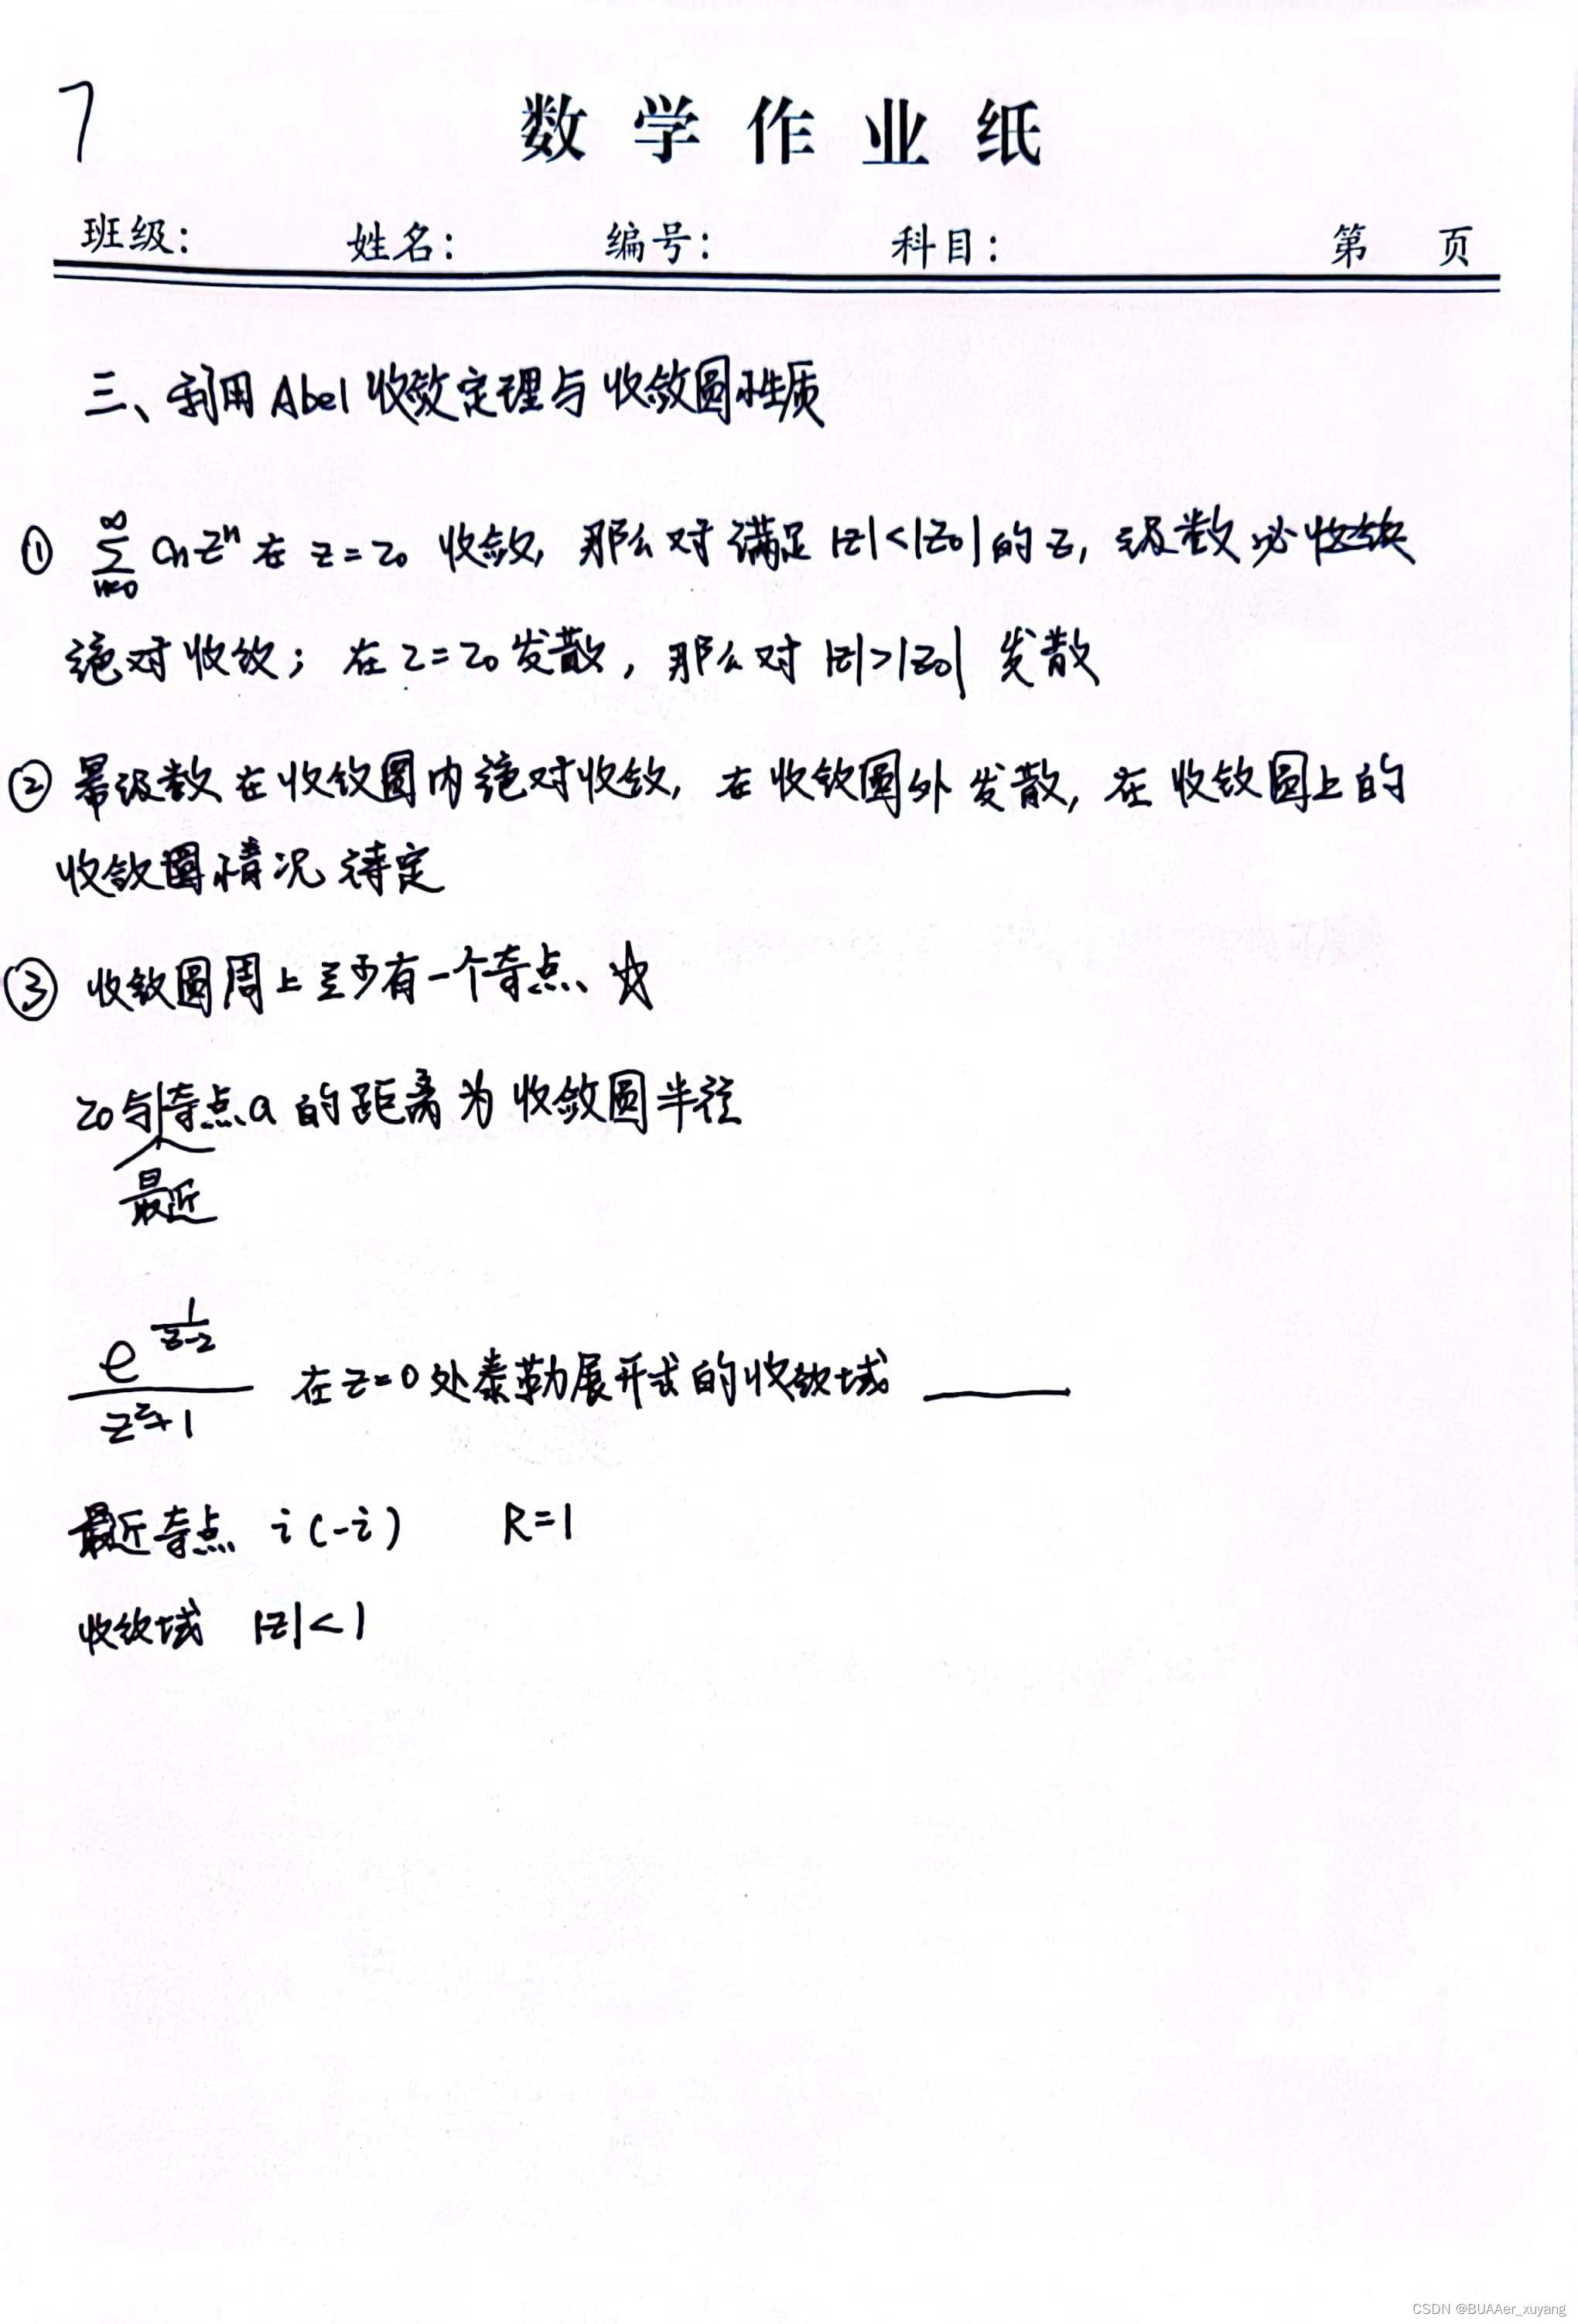 7
数学作业纸
班级: 姓名: 编号: 科目: 第 页
三、利用Abel收敛定理与收敛圆性质
① ∑_{n=0}^{∞} Cnzⁿ 在 z=z₀ 收敛, 那么对满足 |z|<|z₀| 的 z, 级数必
绝对收敛; 在 z=z₀ 发散, 那么对 |z|>|z₀| 发散
② 幂级数在收敛圆内绝对收敛, 在收敛圆外发散, 在收敛圆上的
收敛情况待定
③ 收敛圆周上至少有一个奇点 ☆
z₀与奇点a的距离为收敛圆半径
最近
e^{\frac{1}{z-2}}
z²+1 在z=0处泰勒展开式的收敛域 ____
最近奇点 i(-i) R=1
收敛域 |z|<1
CSDN @BUAAer_xuyang